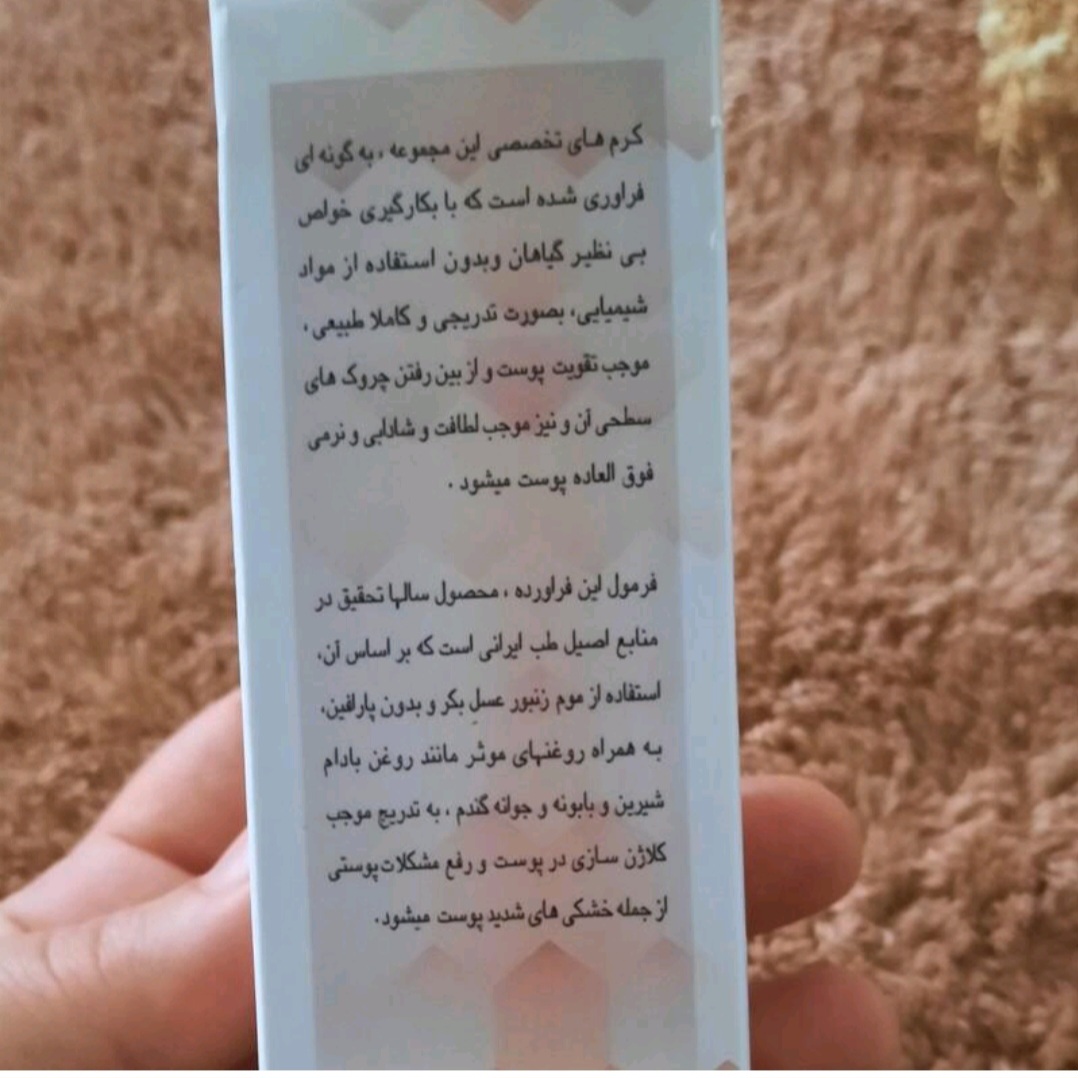 کرم های تخصصی این مجموعه ، به گونه ای
فراوری شده است که با بکارگیری خواص
بی نظیر گیاهان وبدون استفاده از مواد
شیمیایی، بصورت تدریجی و کاملا طبیعی ،
موجب تقویت پوست و از بین رفتن چروک های
سطحی آن و نیز موجب لطافت و شادابی و نرمی
فوق العاده پوست میشود .
فرمول این فراورده ، محصول سالها تحقیق در
منابع اصیل طب ایرانی است که بر اساس آن،
استفاده از موم زنبور عسلِ بکر و بدون پارافین،
به همراه روغنهای موثر مانند روغن بادام
شیرین و بابونه و جوانه گندم ، به تدریج موجب
کلاژن سازی در پوست و رفع مشکلات پوستی
از جمله خشکی های شدید پوست میشود.